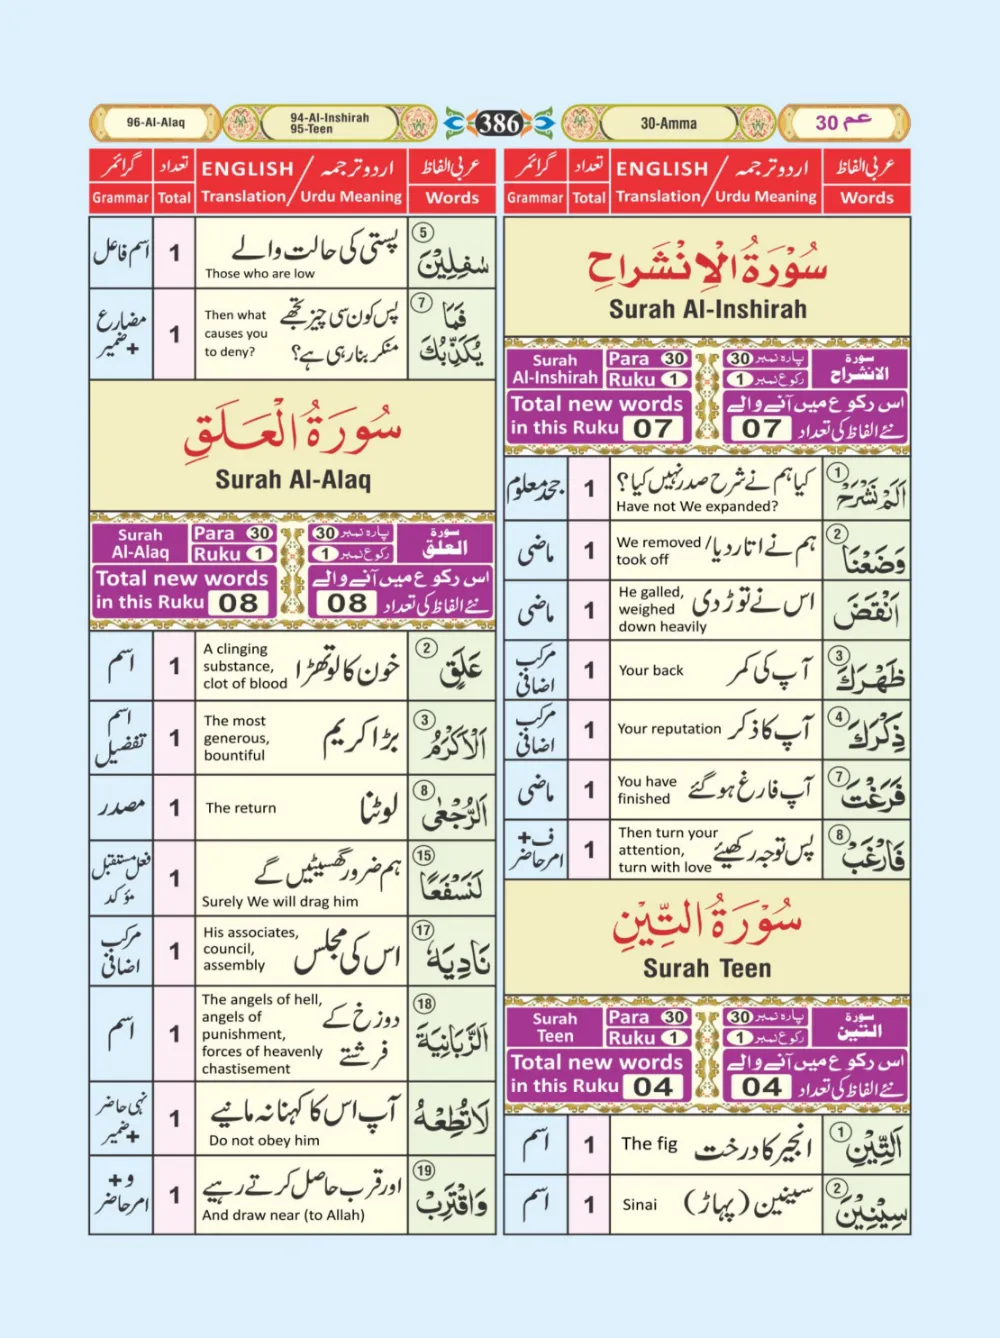 96-Al-Alaq
94-Al-Inshirah
95-Teen
386
30-Amma
عم 30
عربی الفاظ
اردو ترجمہ / ENGLISH
تعداد
گرائمر
Words
Translation / Urdu Meaning
Total
Grammar
سُوْرَةُ الْاِنْشَراح
Surah Al-Inshirah
Surah
Al-Inshirah
Para 30
Ruku 1
پارہ نمبر 30
رکوع نمبر 1
سورۃ
الانشراح
Total new words
in this Ruku 07
اس رکوع میں آنے والے
نئے الفاظ کی تعداد 07
1 اَلَمْ نَشْرَحْ
کیا ہم نے شرح صدر نہیں کیا؟
Have not We expanded?
1
جحد معلوم
2 وَضَعْنَا
ہم نے اتار دیا / We removed
took off
1
ماضی
اَنْقَضَ
اس نے توڑ دی
He galled,
weighed
down heavily
1
ماضی
3 ظَهْرَكَ
آپ کی کمر
Your back
1
مرکب
اضافی
4 ذِكْرَكَ
آپ کا ذکر
Your reputation
1
مرکب
اضافی
7 فَرَغْتَ
آپ فارغ ہو گئے
You have
finished
1
ماضی
8 فَارْغَبْ
پس توجہ رکھیئے
Then turn your
attention,
turn with love
1
ف +
امر حاضر
سُوْرَةُ التِّيْنِ
Surah Teen
Surah
Teen
Para 30
Ruku 1
پارہ نمبر 30
رکوع نمبر 1
سورۃ
التین
Total new words
in this Ruku 04
اس رکوع میں آنے والے
نئے الفاظ کی تعداد 04
1 اَلتِّيْنِ
انجیر کا درخت
The fig
1
اسم
2 سِيْنِيْنَ
سینین (پہاڑ)
Sinai
1
اسم
عربی الفاظ
اردو ترجمہ / ENGLISH
تعداد
گرائمر
Words
Translation / Urdu Meaning
Total
Grammar
5 سٰفِلِيْنَ
پستی کی حالت والے
Those who are low
1
اسم فاعل
7 فَمَا
يُكَذِّبُكَ
پس کون سی چیز تجھے
منکر بنا رہی ہے؟
Then what
causes you
to deny?
1
مضارع
+ ضمیر
سُوْرَةُ الْعَلَقِ
Surah Al-Alaq
Surah
Al-Alaq
Para 30
Ruku 1
پارہ نمبر 30
رکوع نمبر 1
سورۃ
العلق
Total new words
in this Ruku 08
اس رکوع میں آنے والے
نئے الفاظ کی تعداد 08
2 عَلَقٍ
خون کا لوتھڑا
A clinging
substance,
clot of blood
1
اسم
3 اَلْاَكْرَمُ
بڑا کریم
The most
generous,
bountiful
1
اسم
تفضیل
8 اَلرُّجْعٰى
لوٹنا
The return
1
مصدر
15 لَنَسْفَعًا
ہم ضرور گھسیٹیں گے
Surely We will drag him
1
فعل مستقبل
مؤکد
17 نَادِيَهٗ
اس کی مجلس
His associates,
council,
assembly
1
مرکب
اضافی
18 اَلزَّبَانِيَةَ
دوزخ کے
فرشتے
The angels of hell,
angels of
punishment,
forces of heavenly
chastisement
1
اسم
لَا تُطِعْهُ
آپ اس کا کہنا نہ مانیے
Do not obey him
1
نہی حاضر
+ ضمیر
19 وَاقْتَرِبْ
اور قرب حاصل کرتے رہیے
And draw near (to Allah)
1
و +
امر حاضر